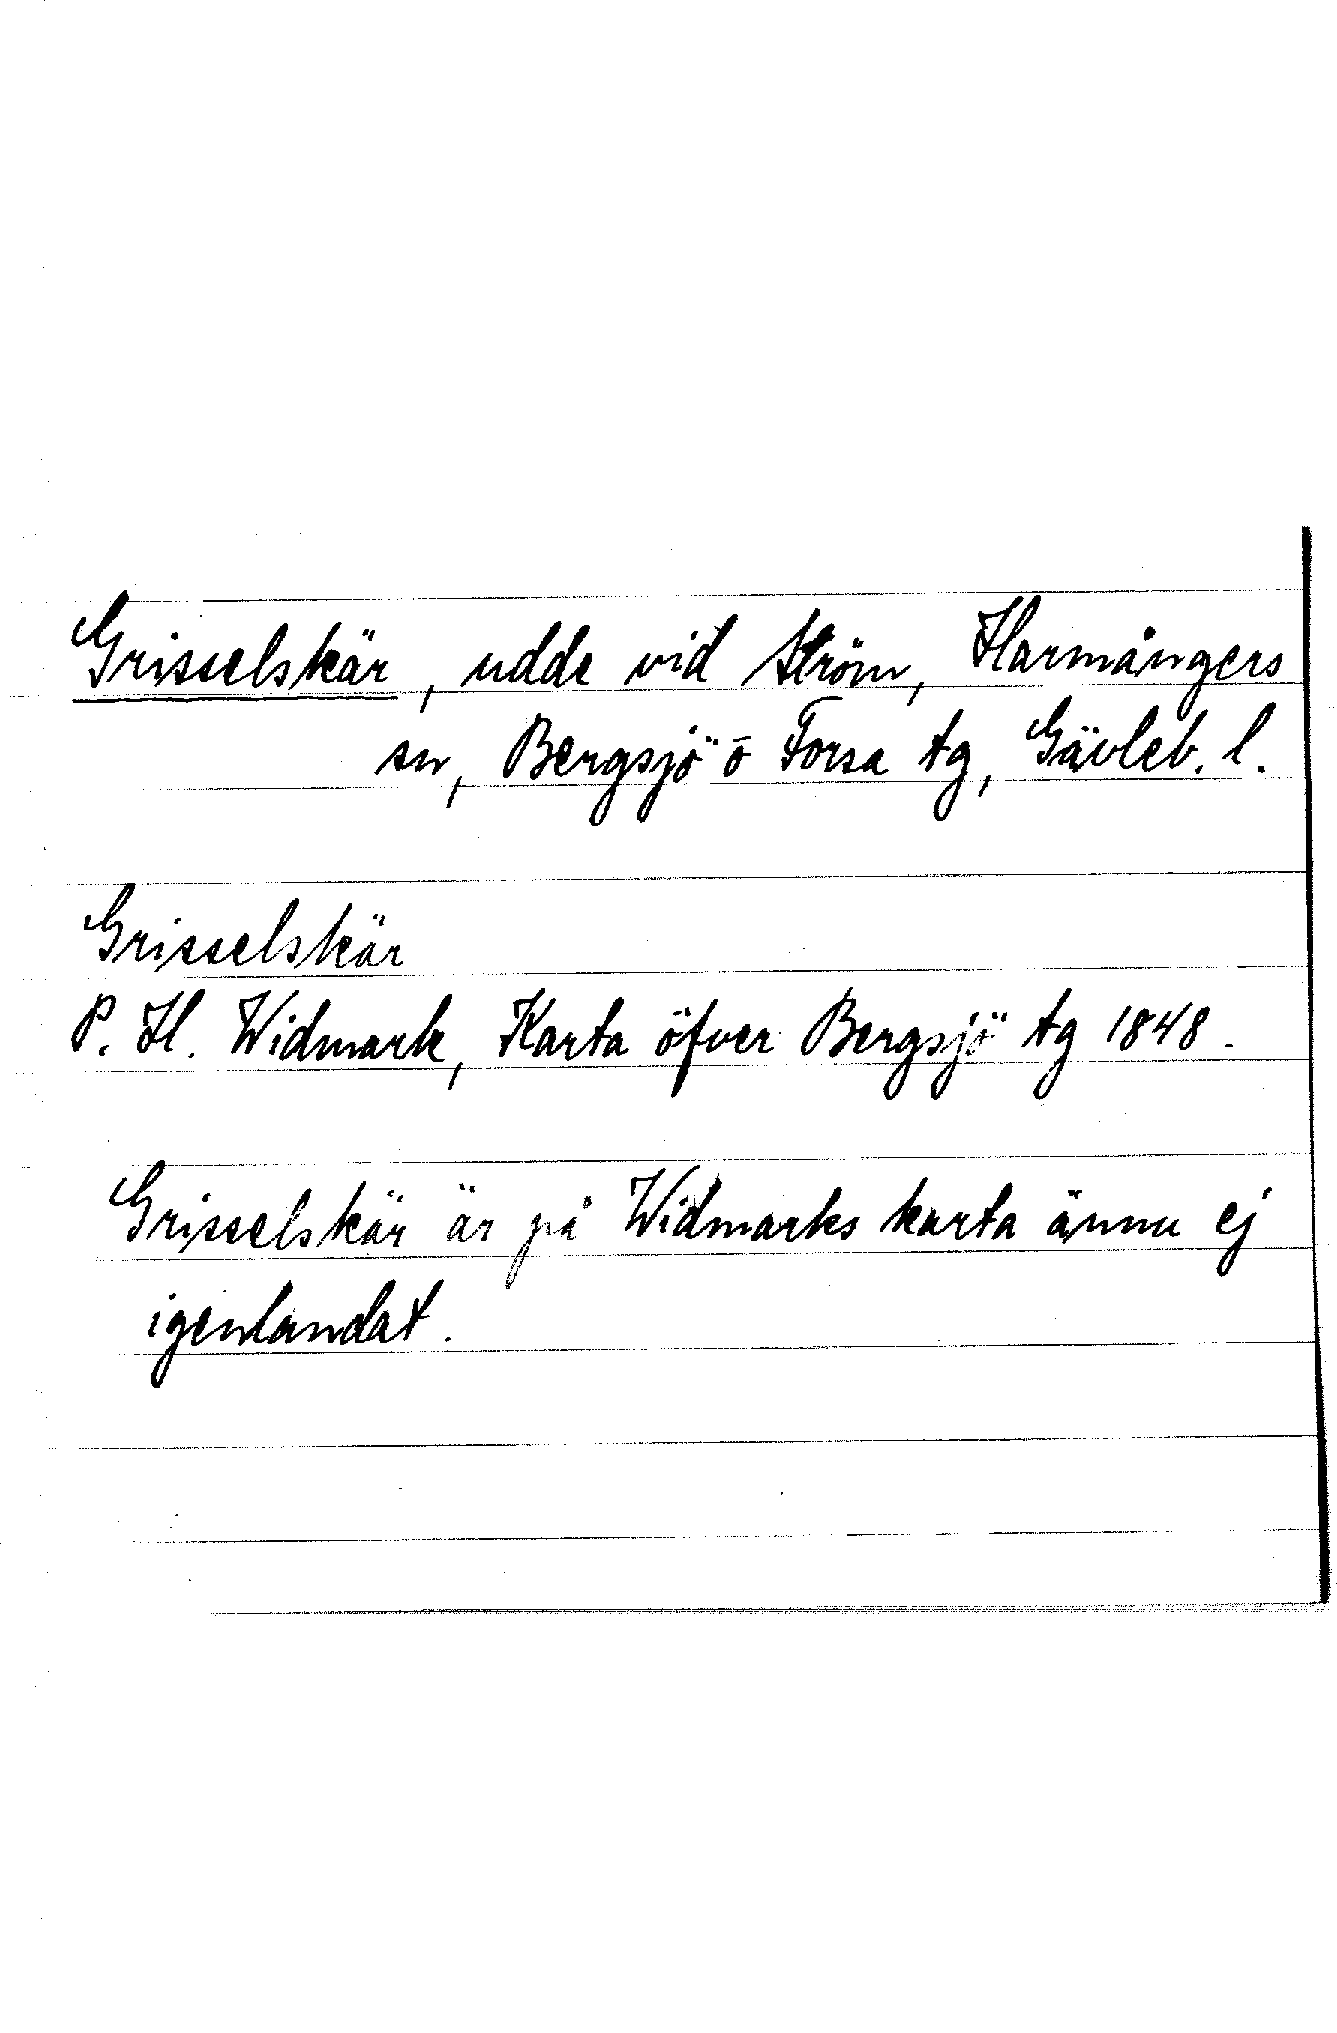 Grisselskär, udde vid Ström, Harmångers
sn, Bergsjö o Forsa tg, Gävleb. l.
Grisselskär
P. H. Widmark, Karta öfver Bergsjö tg 1848.
Grisselskär är på Widmarks karta ännu ej
igenlandat.